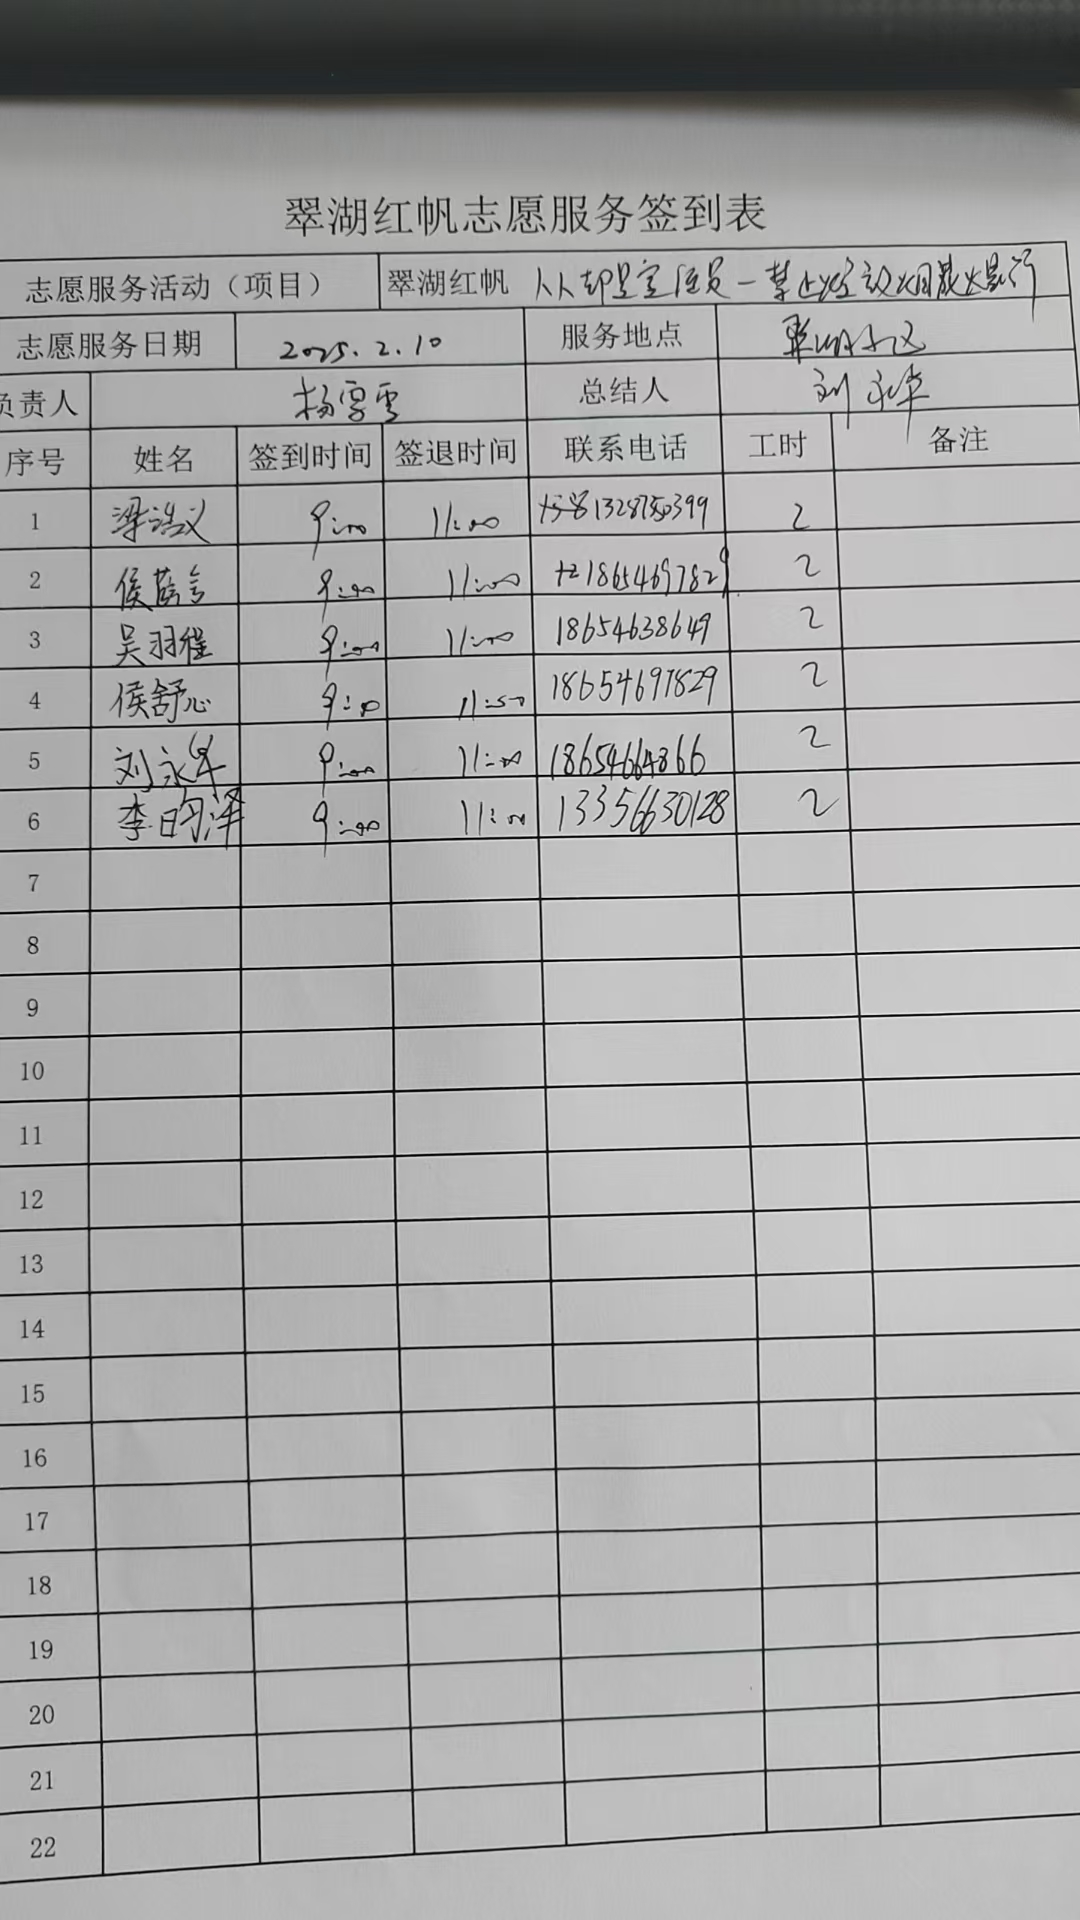 翠湖红帆志愿服务签到表
志愿服务活动（项目） 翠湖红帆 人人都是宣传员一禁止燃放烟花爆竹
志愿服务日期 2025.2.10 服务地点 翠湖小区
负责人 杨雪雪 总结人 刘永华
序号 姓名 签到时间 签退时间 联系电话 工时 备注
1 梁浩义 9:00 11:00 2
2 侯 言 9:00 11:00 18654697829 2
3 吴羽程 9:00 11:00 18654638649 2
4 侯舒心 9:00 11:00 18654697829 2
5 刘永华 9:00 11:00 18654664866 2
6 李昀泽 9:00 11:00 13356630128 2
7
8
9
10
11
12
13
14
15
16
17
18
19
20
21
22